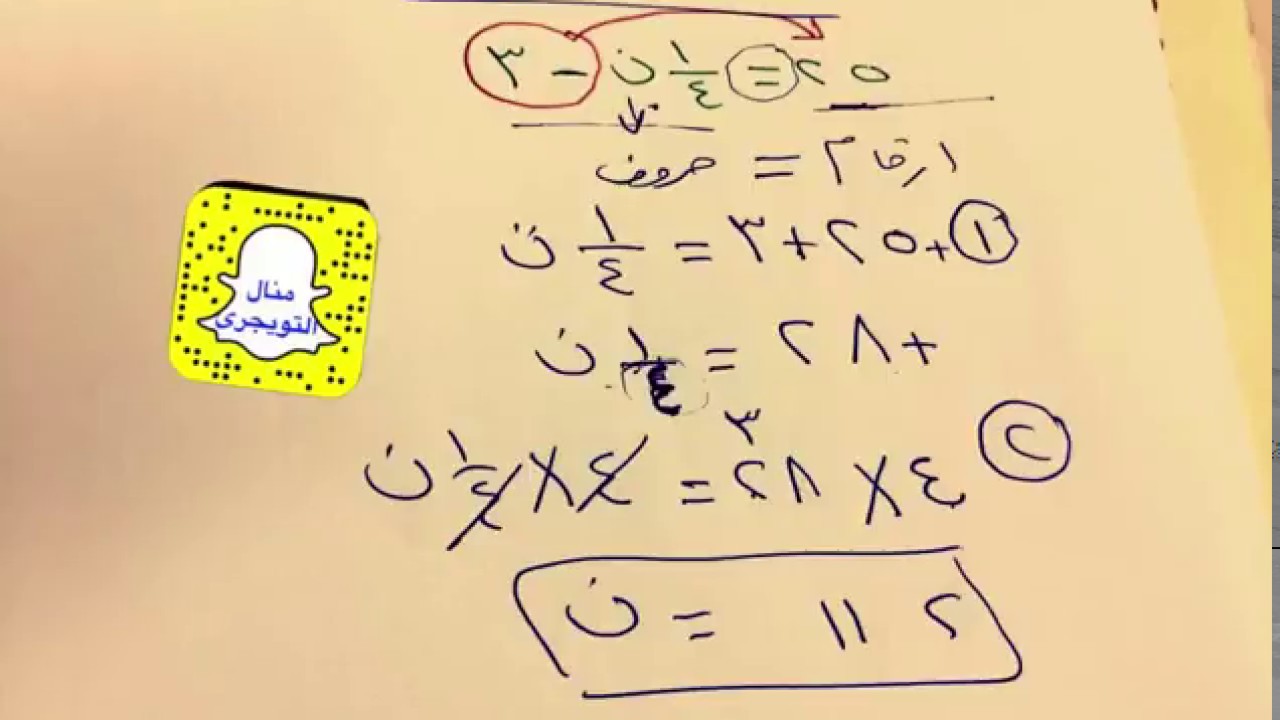 ٢٥ = ١/٤ ن − ٣
ارقام = حروف
① +٢٥ + ٣ = ١/٤ ن
+٢٨ = ١/٤ ن
٣
② ٤ × ٢٨ = ٤ × ١/٤ ن
١١٢ = ن
منال
التويجري